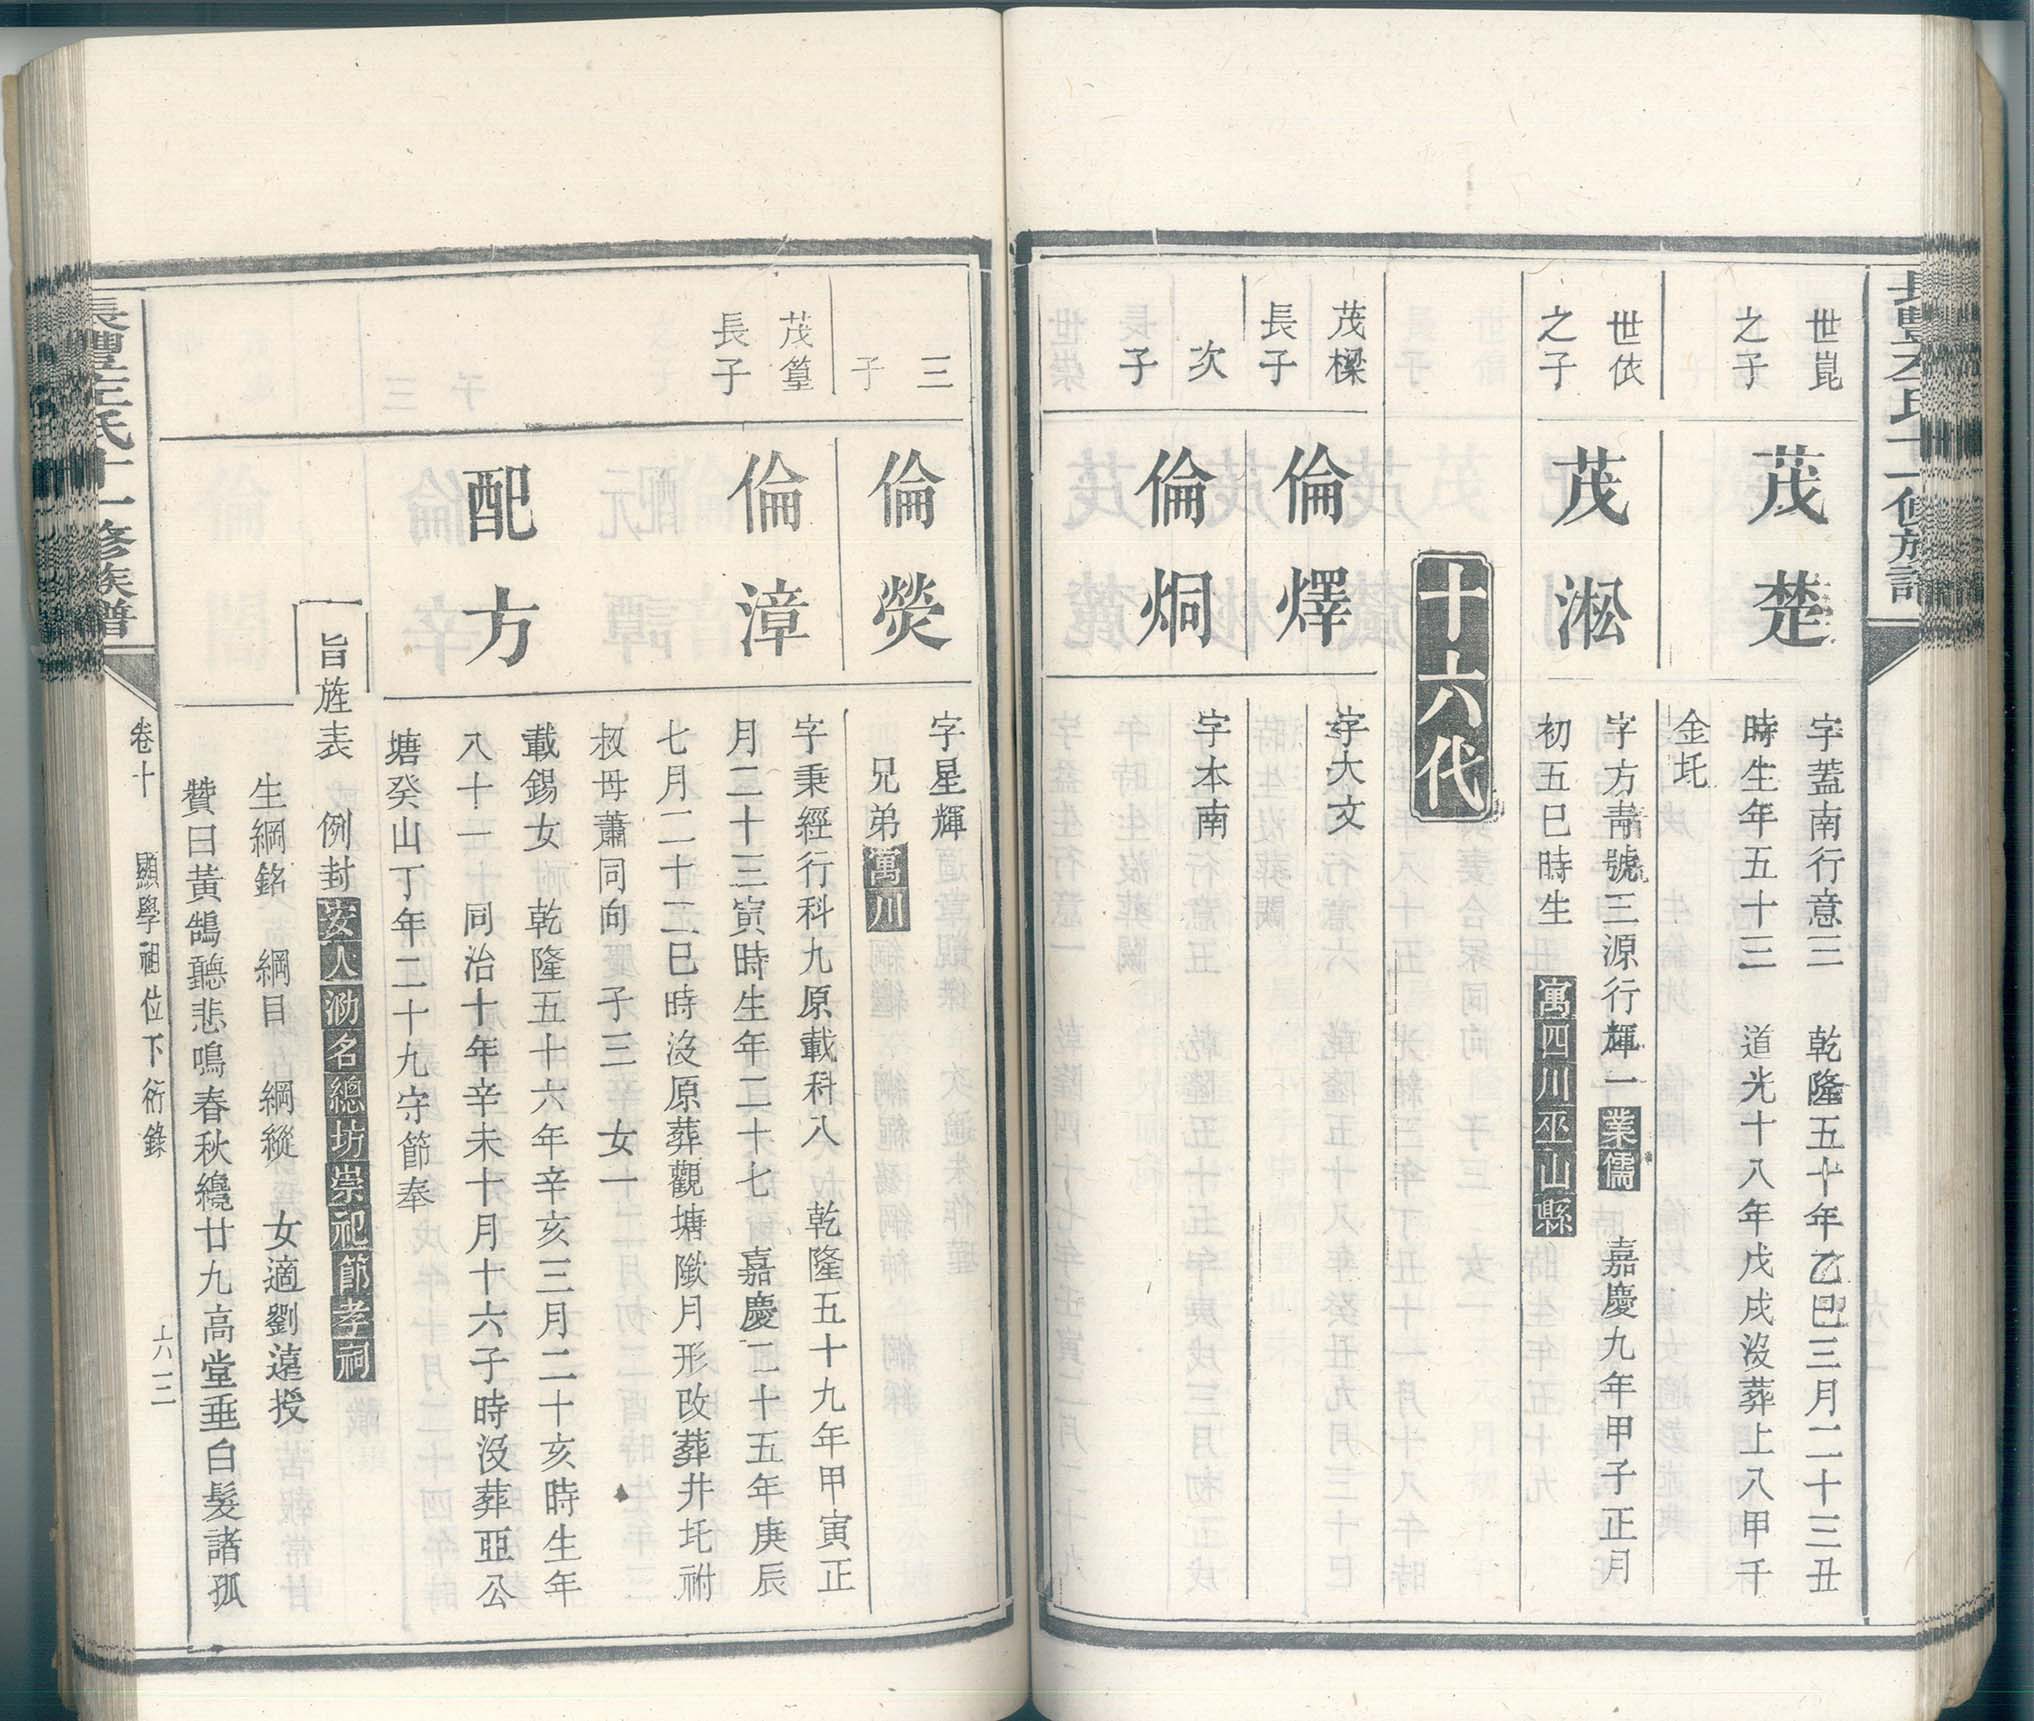 世崑
之子
茂楚
字蓋南行意三　乾隆五十年乙巳三月二十三丑
時生年五十三　道光十八年戊戌沒葬上八甲千
金圫
世依
之子
茂淞
字方靑號三源行輝一業儒　嘉慶九年甲子正月
初五巳時生　寓四川巫山縣
十六代
茂樑
長子
倫燡
字大文
次
子
倫炯
字本南
三
子
倫熒
字星輝
兄弟寓川
茂篁
長子
倫漳
字秉經行科九原載科八　乾隆五十九年甲寅正
月二十三寅時生年二十七　嘉慶二十五年庚辰
七月二十二巳時沒原葬觀塘隵月形改葬井圫祔
叔母蕭同向　子三　女一
配方
載錫女　乾隆五十六年辛亥三月二十亥時生年
八十一　同治十年辛未十月十六子時沒葬亞公
塘癸山丁年二十九守節奉
旨旌表　例封安人泐名總坊崇祀節孝祠
生綱銘　綱目　綱縱　女適劉遠授
贊曰黃鵠聽悲鳴春秋纔廿九高堂垂白髮諸孤
長豐左氏十一修族譜
卷十　顯學祖位下衍錄　六三